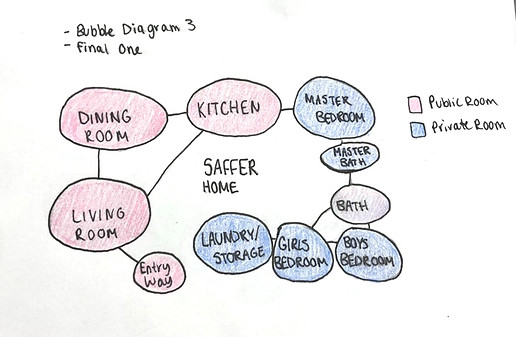 - Bubble Diagram 3
- Final One
DINING
ROOM
KITCHEN
MASTER
BEDROOM
Public Room
Private Room
MASTER
BATH
SAFFER
HOME
BATH
LIVING
ROOM
LAUNDRY/
STORAGE
GIRLS
BEDROOM
BOYS
BEDROOM
Entry
Way